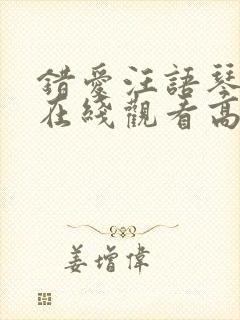 錯愛汪語琴
在綫觀看高
姜增偉